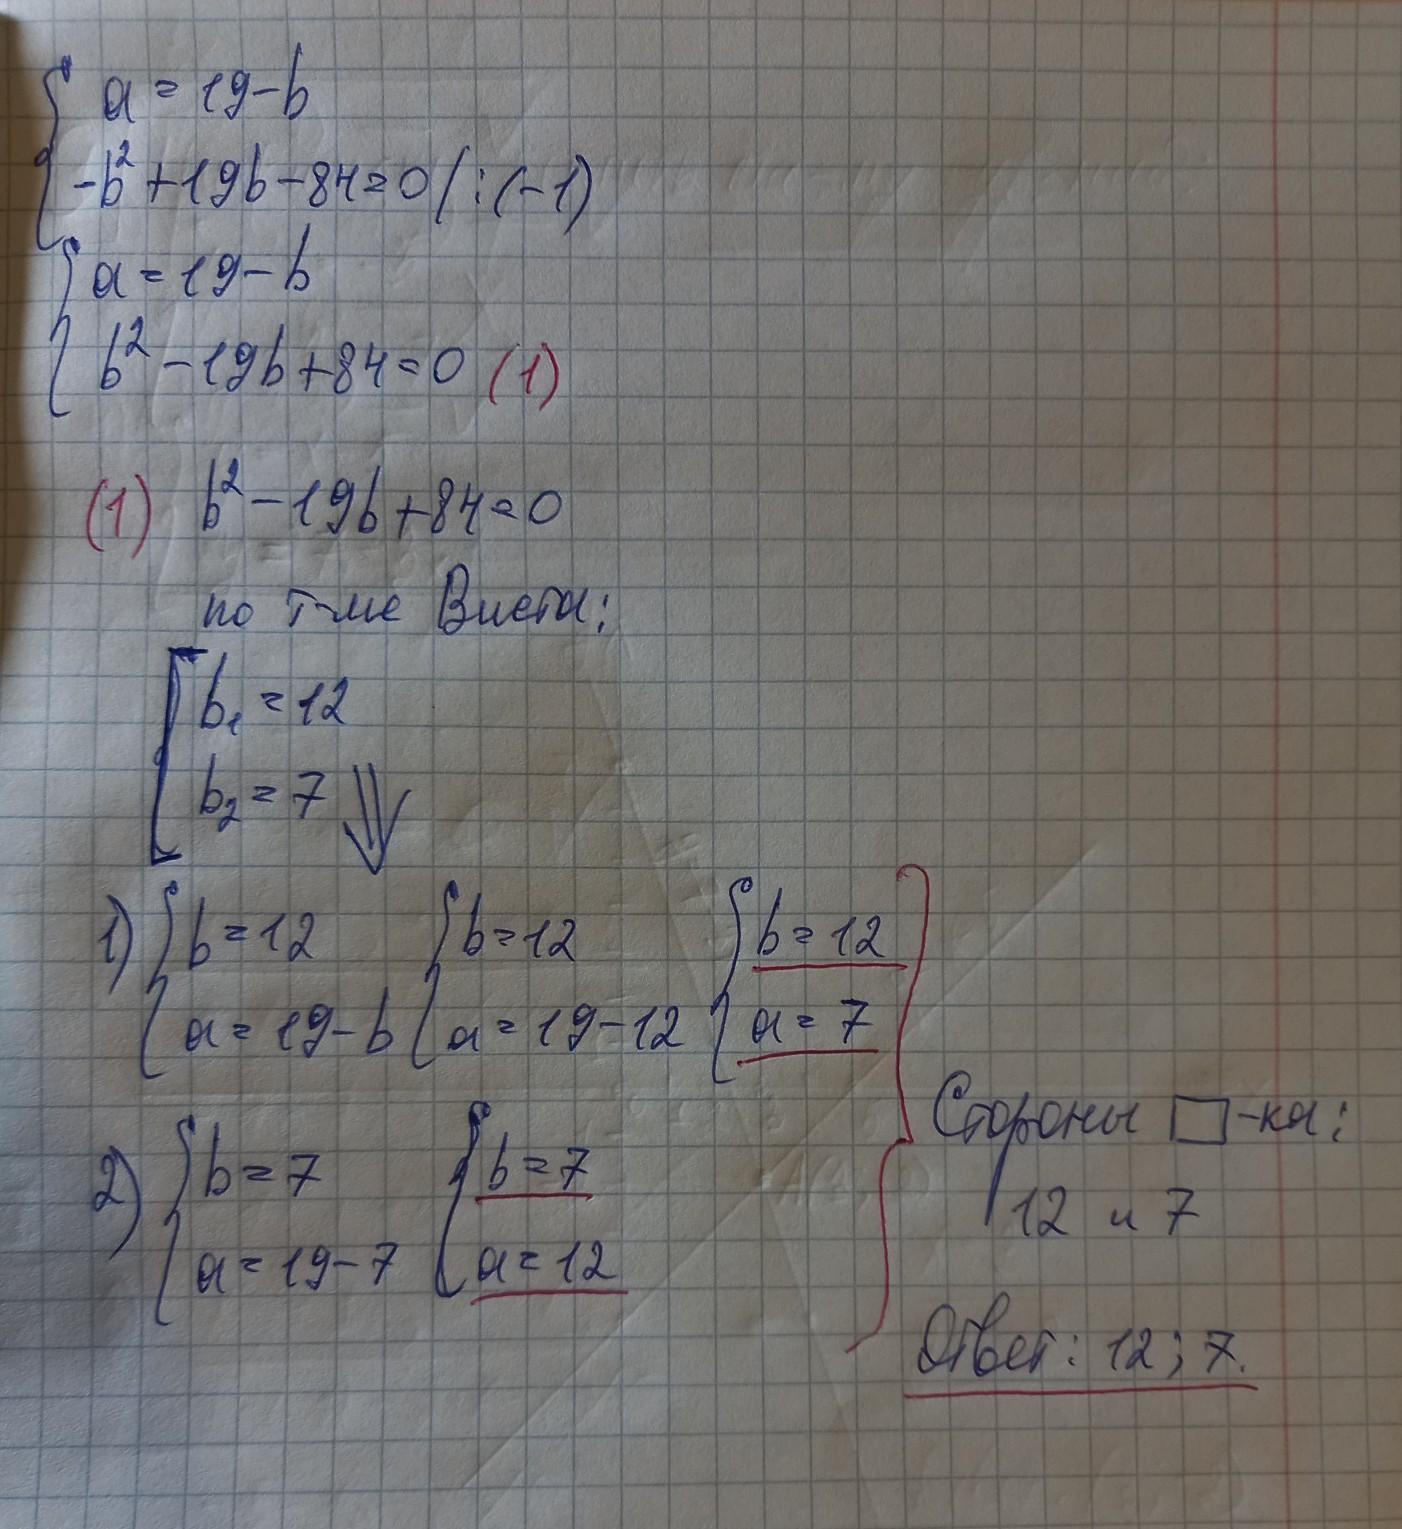 a = 19-b
-b² + 19b - 84 = 0 / : (-1)
a = 19-b
b² - 19b + 84 = 0 (1)
(1) b² - 19b + 84 = 0
по т-ме Виета:
b₁ = 12
b₂ = 7
1) b = 12 b = 12 b = 12
a = 19-b a = 19-12 a = 7
2) b = 7 b = 7
a = 19-7 a = 12
Стороны □-ка:
12 и 7
Ответ: 12; 7.